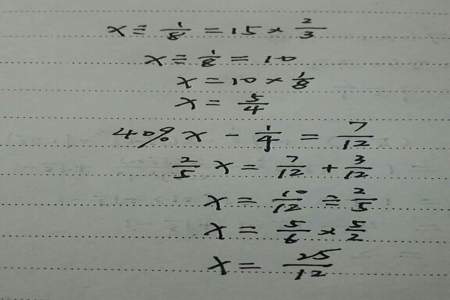 x ÷ 1/8 = 15 × 2/3
x ÷ 1/8 = 10
x = 10 × 1/8
x = 5/4
40% x - 1/4 = 7/12
2/5 x = 7/12 + 3/12
x = 10/12 ÷ 2/5
x = 5/6 × 5/2
x = 25/12